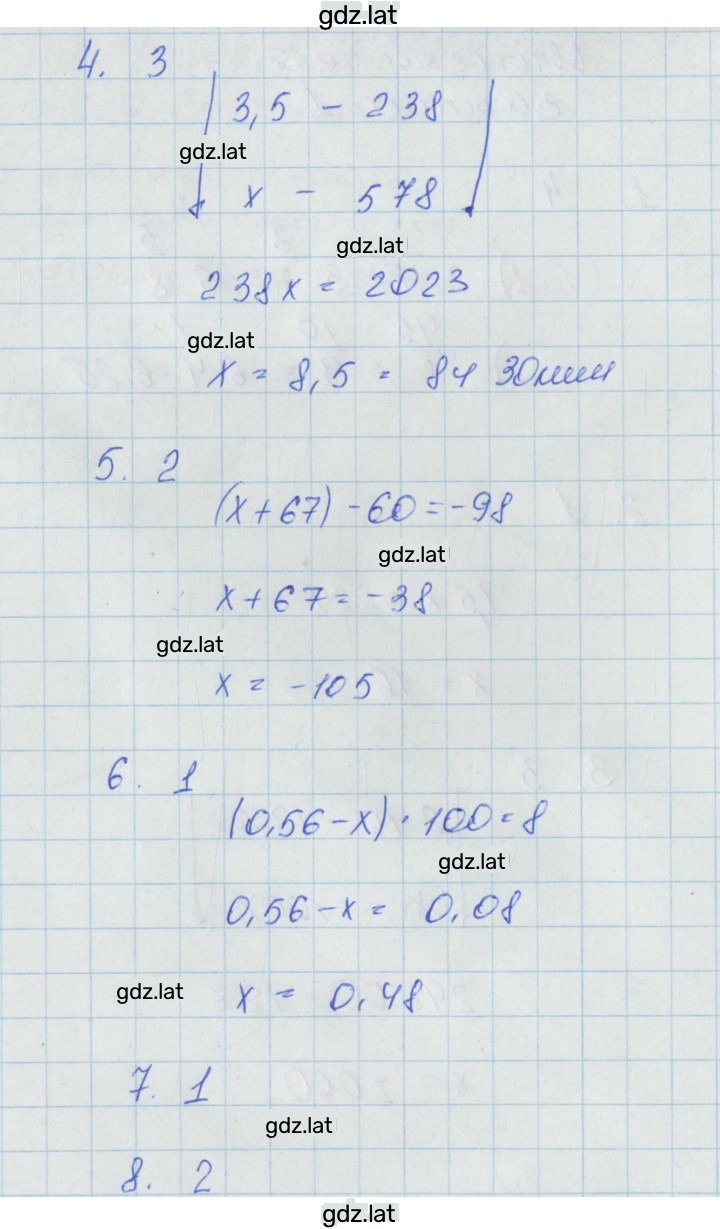 gdz.lat
4. 3
3,5 - 238
gdz.lat
x - 578
gdz.lat
238x = 2023
gdz.lat
x = 8,5 = 8ч 30мин
5. 2
(x+67) - 60 = -98
gdz.lat
x + 67 = -38
gdz.lat
x = -105
6. 1
(0,56 - x) · 100 = 8
gdz.lat
0,56 - x = 0,08
gdz.lat
x = 0,48
7. 1
gdz.lat
8. 2
gdz.lat